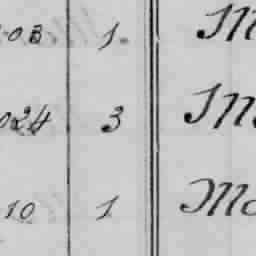 03 1 M
024 3 M
10 1 Mo